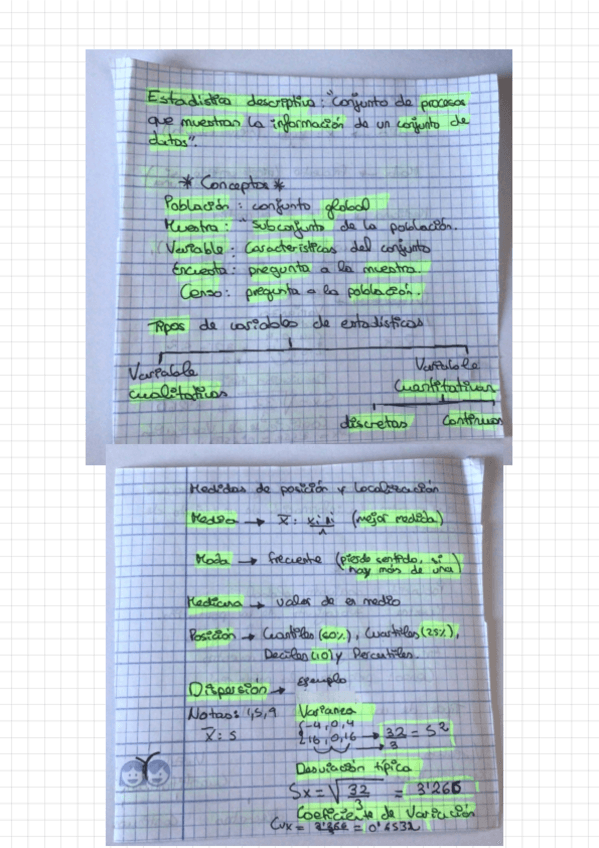 Estadística descriptiva: "Conjunto de procesos
que muestran la información de un conjunto de
datos".
* Conceptos *
Población: conjunto global
Muestra: "Subconjunto de la población.
Variable: Características del conjunto
Encuesta: pregunta a la muestra.
Censo: pregunta a la población.
Tipos de variables de estadísticas
Variable
cualitativas
Variable
Cuantitativas
discretas
Continuas
Medidas de posición y localización
Media → x̄: xi·ni/n (mejor medida)
Moda → frecuente (pierde sentido, si
hay más de una)
Mediana → valor de en medio
Posición → Cuantiles (60%), Cuartiles (25%),
Deciles (10) y Percentiles.
Dispersión → ejemplo
Notas: 1,5,9
x̄: 5
Varianza
-4, 0, 4
16, 0, 16 → 32/3 = S²
Desviación típica
Sx = √32/3 = 3'266
Coeficiente de Variación
CVx = = 0'6532